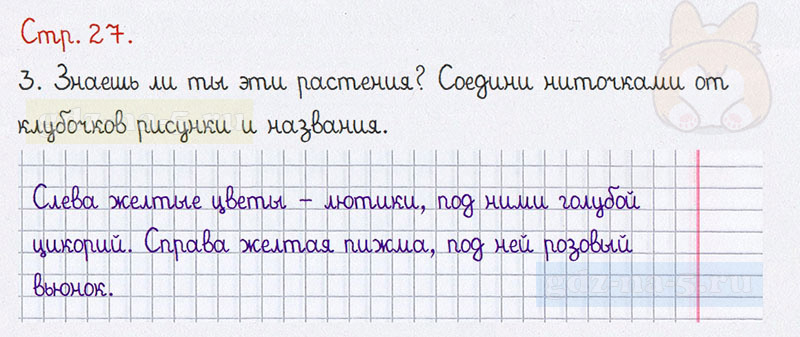 Стр. 27.
3. Знаешь ли ты эти растения? Соедини ниточками от
клубочков рисунки и названия.
Слева желтые цветы – лютики, под ними голубой
цикорий. Справа желтая пижма, под ней розовый
вьюнок.
gdz-na-5.ru
gdz-na-5.ru